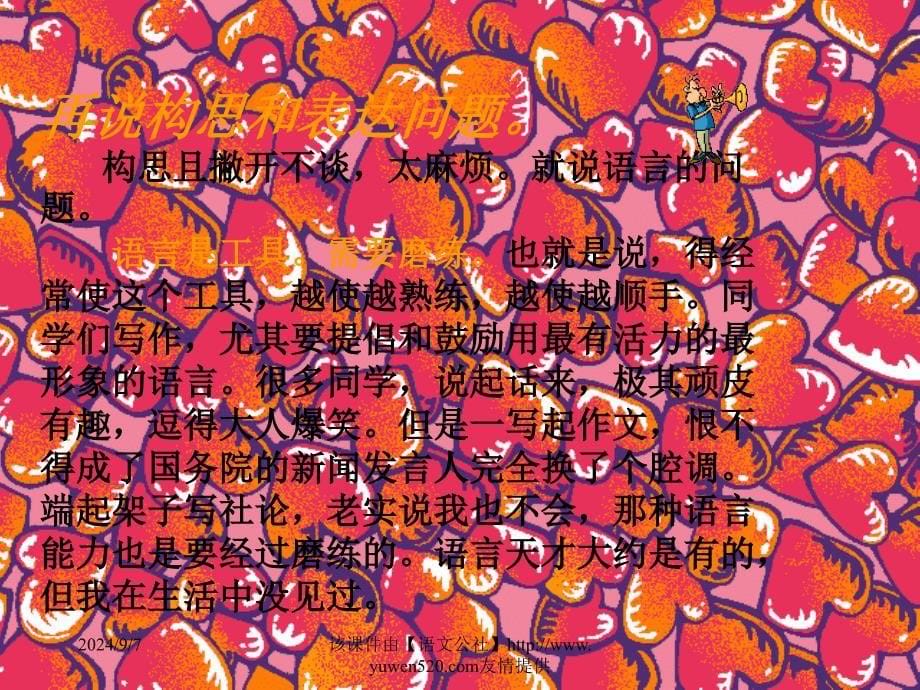 再说构思和表达问题。
构思且撇开不谈，太麻烦。就说语言的问
题。
语言是工具。需要磨练。也就是说，得经
常使这个工具，越使越熟练，越使越顺手。同
学们写作，尤其要提倡和鼓励用最有活力的最
形象的语言。很多同学，说起话来，极其顽皮
有趣，逗得大人爆笑。但是一写起作文，恨不
得成了国务院的新闻发言人完全换了个腔调。
端起架子写社论，老实说我也不会，那种语言
能力也是要经过磨练的。语言天才大约是有的，
但我在生活中没见过。
2024/9/7
该课件由【语文公社】http://www.
yuwen520.com友情提供